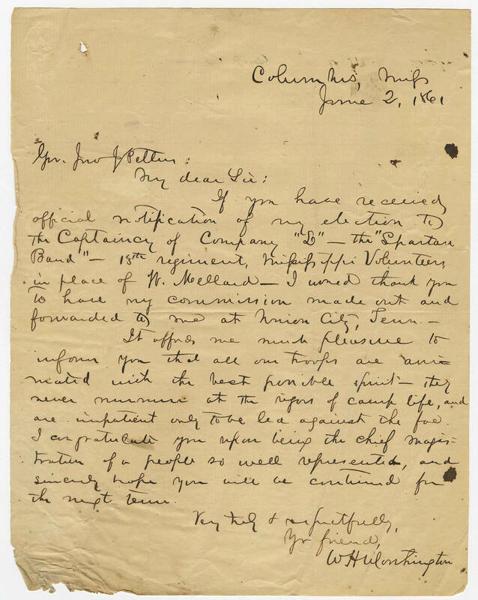 Columbus, Miss
June 2, 1861
Gov. Jno J Pettus:
My dear Sir:
If you have received
official notification of my election to
the Captaincy of Company "D" — the "Spartan
Band" — 13th regiment, Mississippi Volunteers
in place of W. Mellard — I would thank you
to have my commission made out and
forwarded to me at Union City, Tenn. —
It affords me much pleasure to
inform you that all our troops are ani-
mated with the best possible spirit — they
never murmur at the rigors of camp life, and
are impatient only to be led against the foe.
I congratulate you upon being the chief magis-
trate of a people so well represented, and
sincerely hope you will be continued for
the next term.
Very truly & respectfully,
Yr friend,
W H Worthington